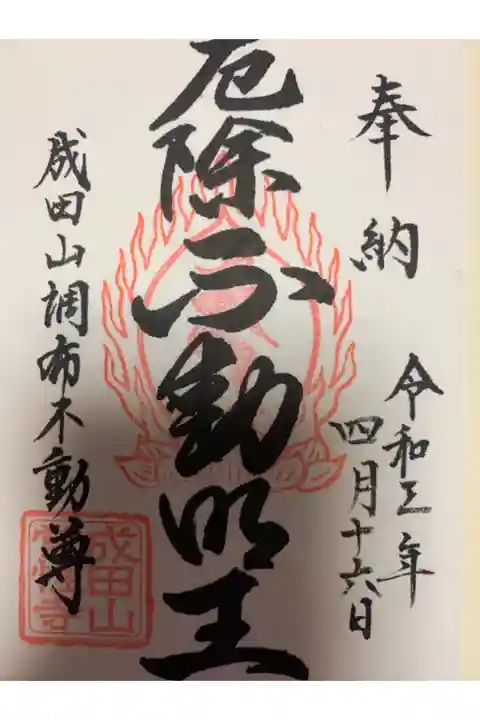 奉納
令和三年
四月十六日
厄除不動明王
成田山調布不動尊
成田山